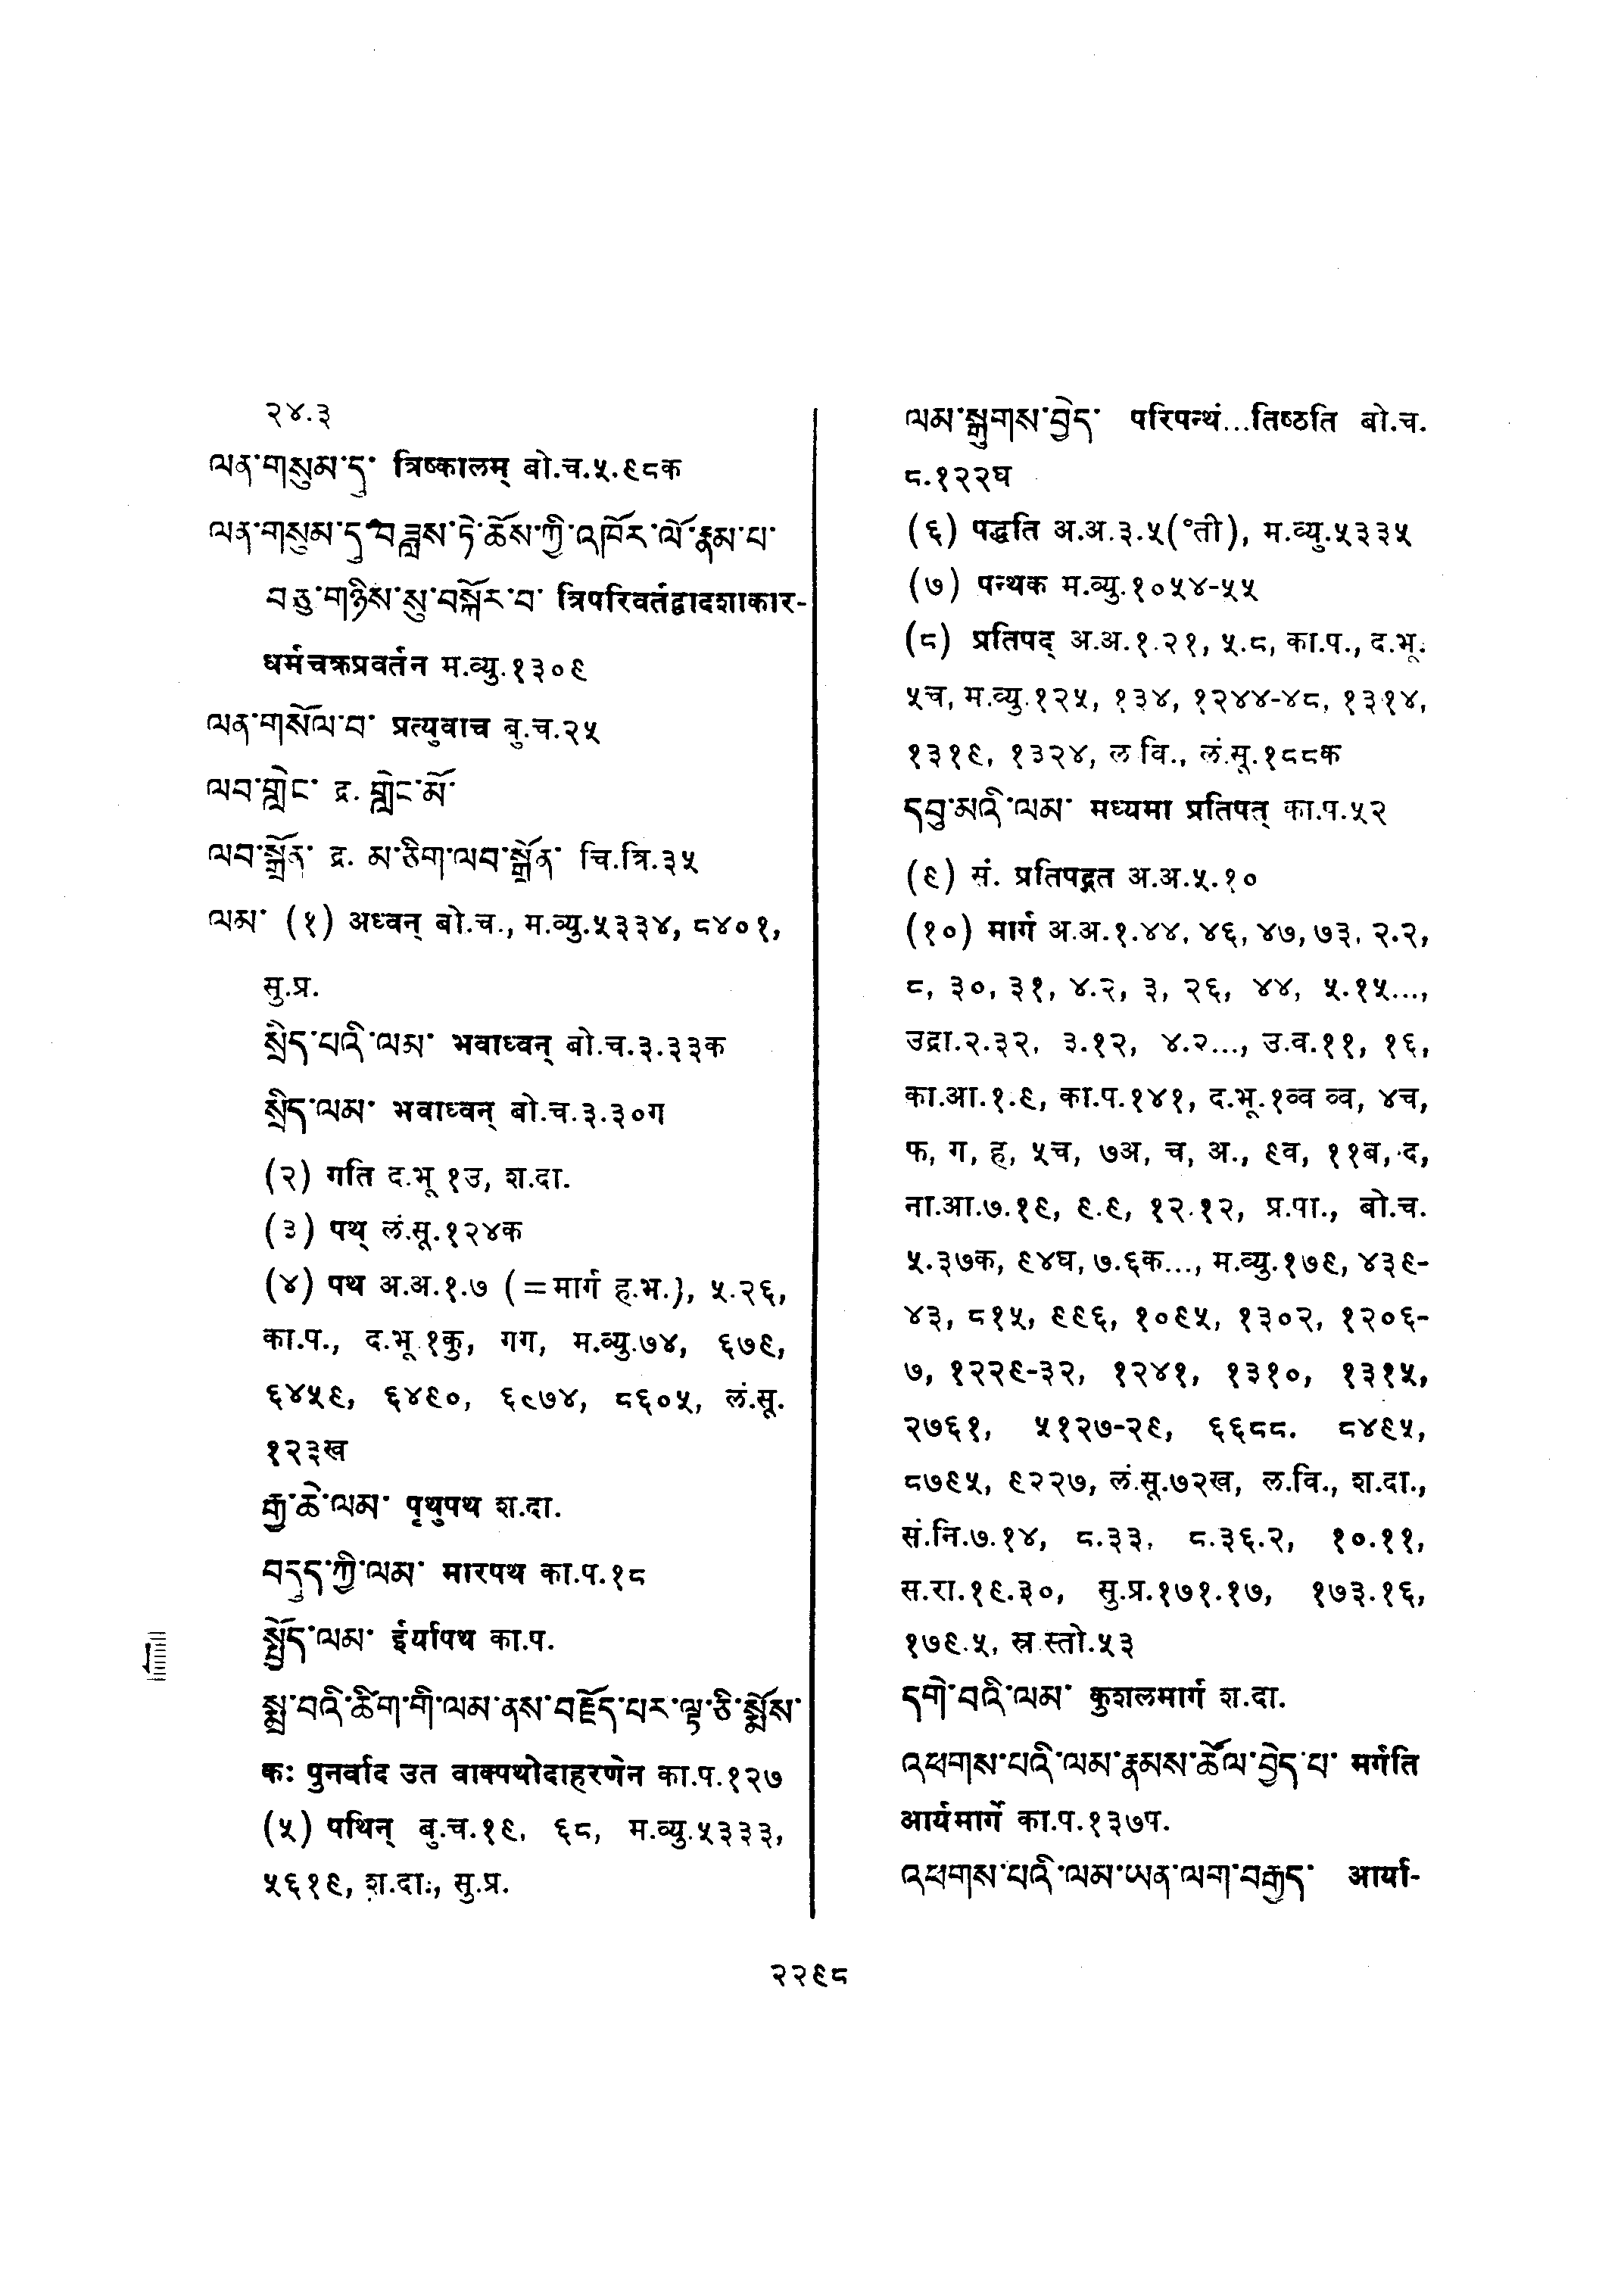 २४.३
ལན་གསུམ་དུ་ त्रिष्कालम् बो.च.५.९८क
ལན་གསུམ་དུ་བཟླས་ཏེ་ཆོས་ཀྱི་འཁོར་ལོ་རྣམ་པ་
བཅུ་གཉིས་སུ་བསྐོར་བ་ त्रिपरिवर्तद्वादशाकार-
धर्मचक्रप्रवर्तन म.व्यु.१३०९
ལན་གསོལ་བ་ प्रत्युवाच बु.च.२५
ལབ་གླེང་ द्र. གླེང་མོ་
ལབ་སྒྲོན་ द्र. མ་ཅིག་ལབ་སྒྲོན་ चि.त्रि.३५
ལམ་ (१) अध्वन् बो.च., म.व्यु.५३३४, ८४०१,
सु.प्र.
སྲིད་པའི་ལམ་ भवाध्वन् बो.च.३.३३क
སྲིད་ལམ་ भवाध्वन् बो.च.३.३०ग
(२) गति द.भू १उ, श.दा.
(३) पथ् लं.सू.१२४क
(४) पथ अ.अ.१.७ (=मार्ग ह.भ.), ५.२६,
का.प., द.भू.१कु, गग, म.व्यु.७४, ६७९,
६४५९, ६४९०, ६९७४, ८६०५, लं.सू.
१२३ख
རྒྱ་ཆེ་ལམ་ पृथुपथ श.दा.
བདུད་ཀྱི་ལམ་ मारपथ का.प.१८
སྤྱོད་ལམ་ ईर्यापथ का.प.
སྨྲ་བའི་ཚིག་གི་ལམ་ནས་བརྗོད་པར་ལྟ་ཅི་སྨོས་
कः पुनर्वाद उत वाक्पथोदाहरणेन का.प.१२७
(५) पथिन् बु.च.१९, ६८, म.व्यु.५३३३,
५६१९, श.दा., सु.प्र.
ལམ་སྒྲུགས་བྱེད་ परिपन्थं...तिष्ठति बो.च.
८.१२२घ
(६) पद्धति अ.अ.३.५(°ती), म.व्यु.५३३५
(७) पन्थक म.व्यु.१०५४-५५
(८) प्रतिपद् अ.अ.१.२१, ५.८, का.प., द.भू.
५च, म.व्यु.१२५, १३४, १२४४-४८, १३१४,
१३१९, १३२४, ल वि., लं.सू.१८८क
དབུ་མའི་ལམ་ मध्यमा प्रतिपत् का.प.५२
(९) सं. प्रतिपद्गत अ.अ.५.१०
(१०) मार्ग अ.अ.१.४४, ४६, ४७, ७३, २.२,
८, ३०, ३१, ४.२, ३, २६, ४४, ५.१५...,
उद्रा.२.३२, ३.१२, ४.२..., उ.व.११, १६,
का.आ.१.९, का.प.१४१, द.भू.१व्व व्व, ४च,
फ, ग, ह, ५च, ७अ, च, अ., ९व, ११ब, द,
ना.आ.७.१९, ९.९, १२.१२, प्र.पा., बो.च.
५.३७क, ९४घ, ७.६क..., म.व्यु.१७९, ४३९-
४३, ८१५, ९९६, १०९५, १३०२, १२०६-
७, १२२९-३२, १२४१, १३१०, १३१५,
२७६१, ५१२७-२९, ६६८८. ८४९५,
८७९५, ९२२७, लं.सू.७२ख, ल.वि., श.दा.,
सं.नि.७.१४, ८.३३, ८.३६.२, १०.११,
स.रा.१९.३०, सु.प्र.१७१.१७, १७३.१६,
१७९.५, स्र.स्तो.५३
དགེ་བའི་ལམ་ कुशलमार्ग श.दा.
འཕགས་པའི་ལམ་རྣམས་ཚོལ་བྱེད་པ་ मर्गति
आर्यमार्गे का.प.१३७प.
འཕགས་པའི་ལམ་ཡན་ལག་བརྒྱད་ आर्या-
२२९८